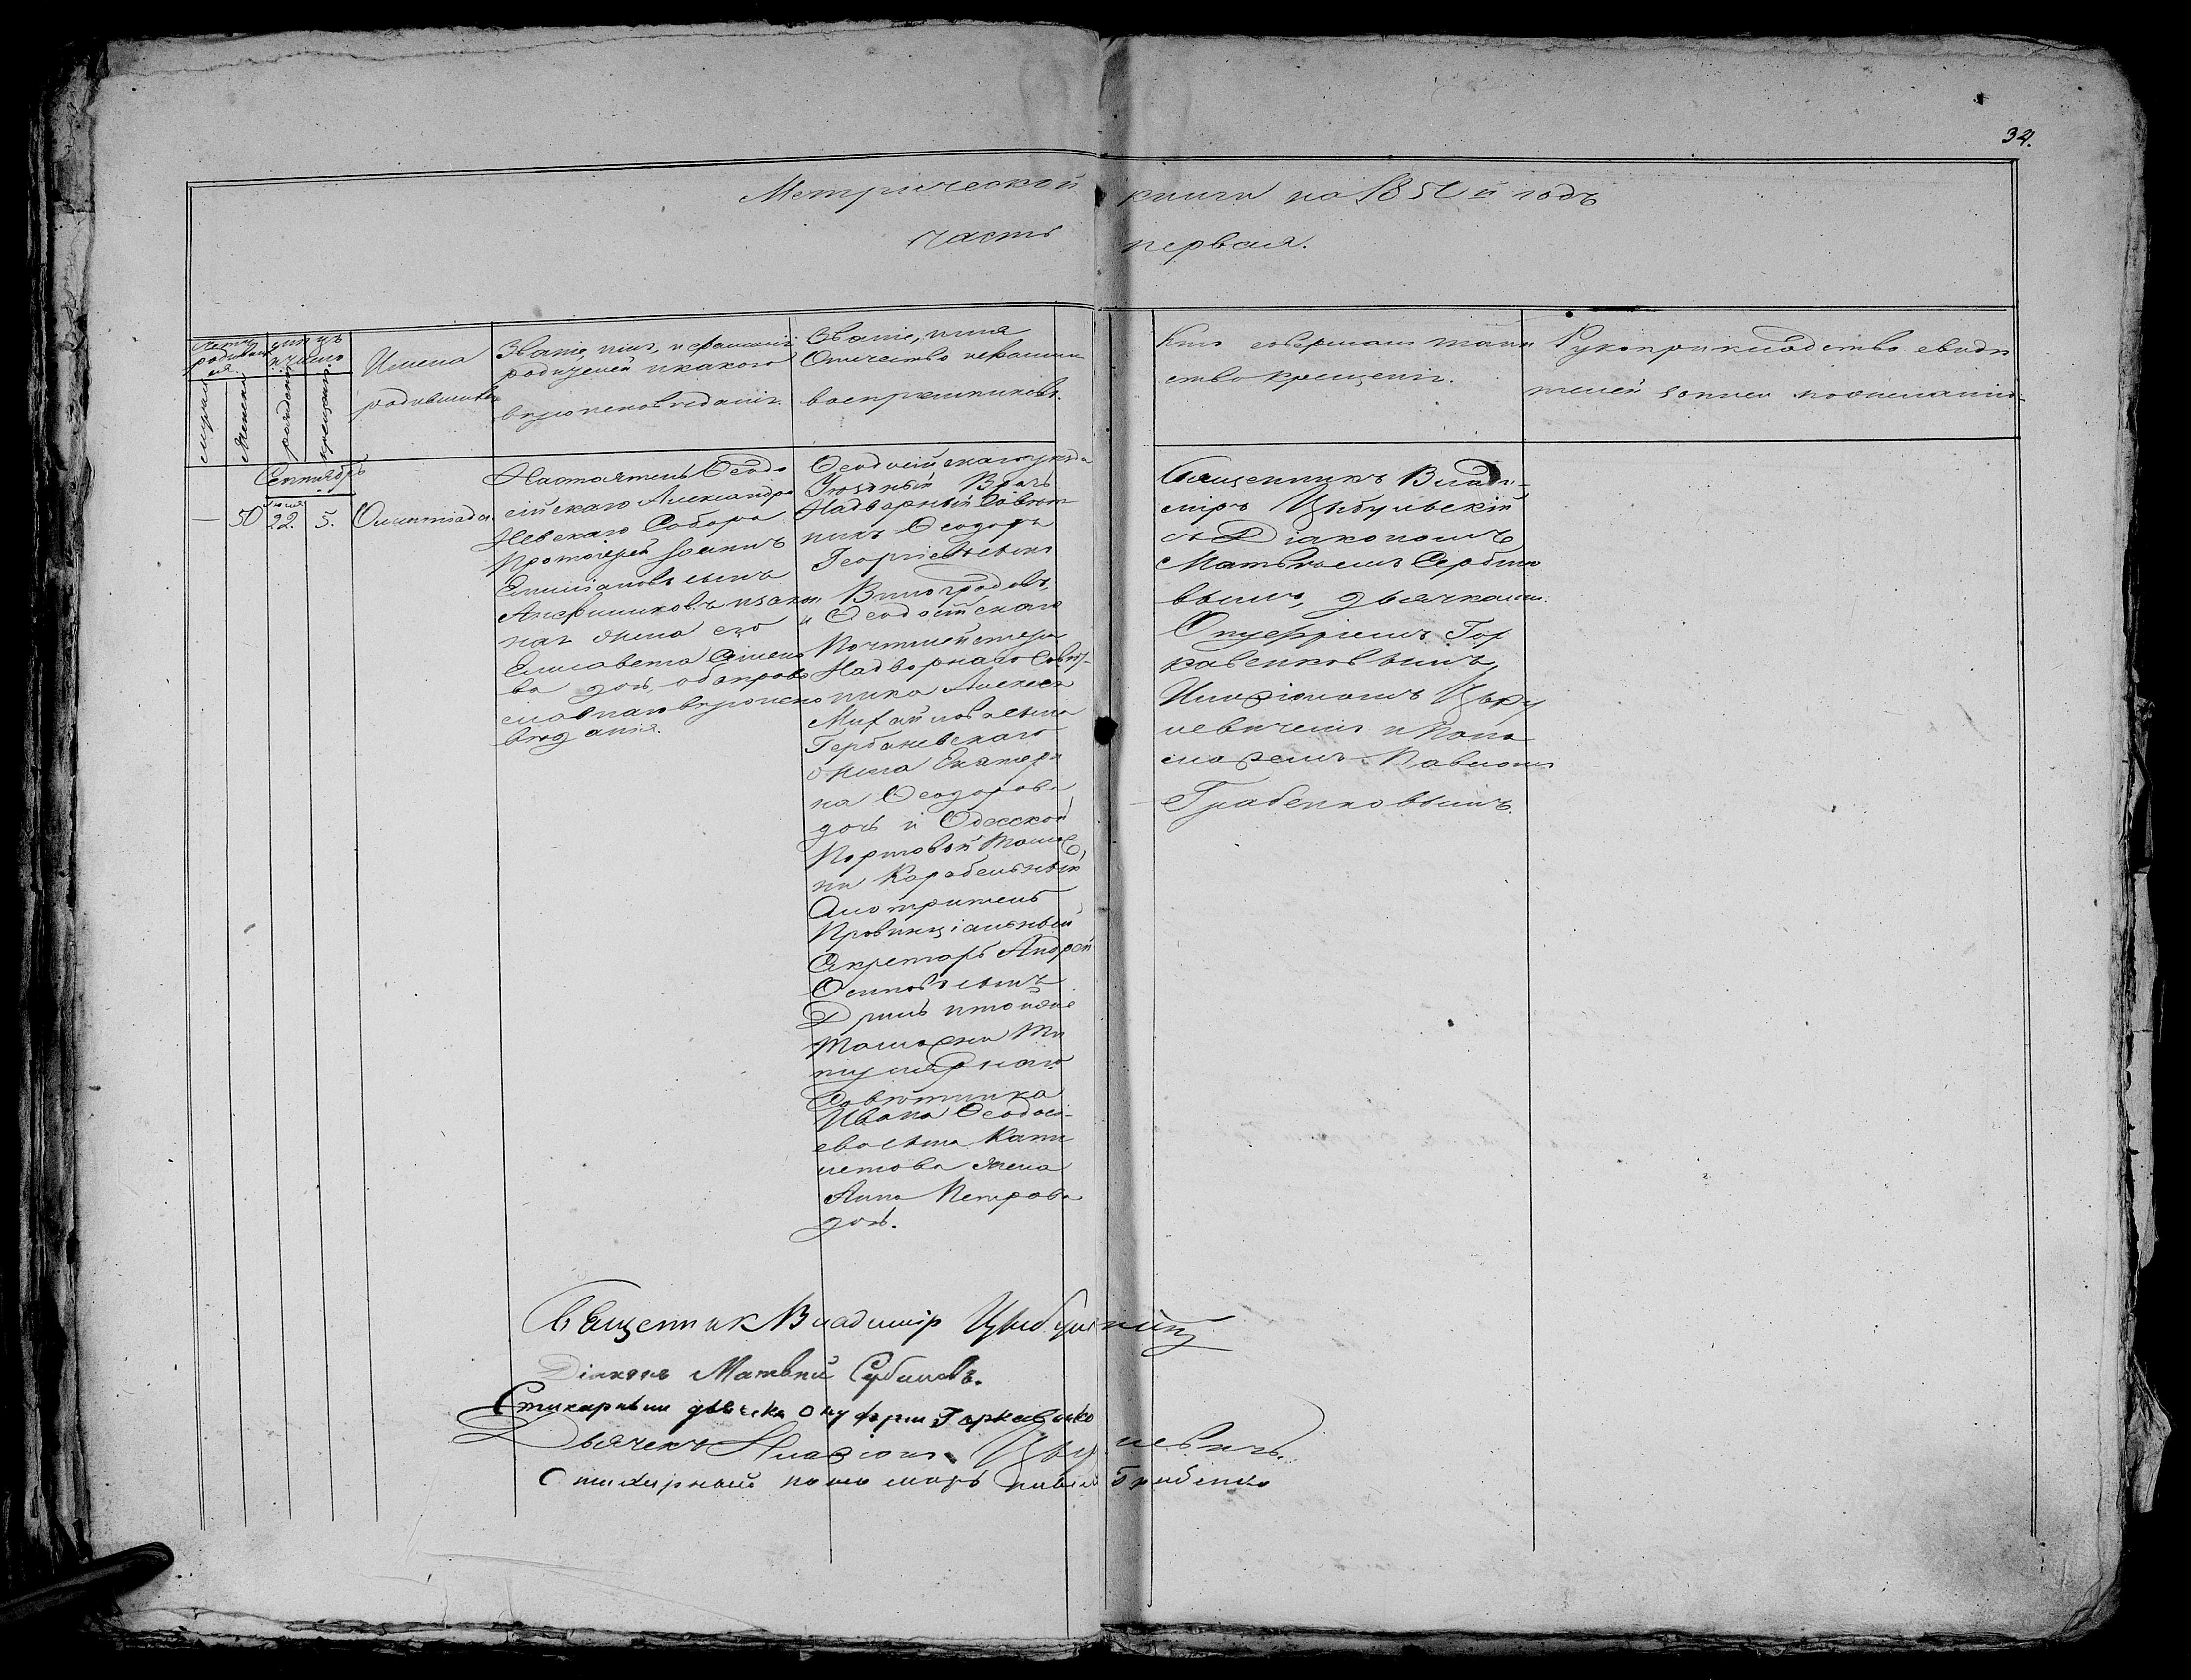 34.
Метрической книги на 1850й годъ
часть первая.
Счетъ родившихся
мѣсяцъ и число
мужеска
женска
рожденія
крещенія
Имена
родившихся
Званіе, имя, и фамилія
родителей и какого
вѣроисповѣданія.
Званіе, имя
Отчество и фамилія
воспріемниковъ.
Кто совершалъ таин
ство крещенія.
Рукоприкладство свидѣ
телей записи по желанію
Сентябрь
— 50
Іюля
22.
5.
Олимпіада
Настоятель Ѳеодо
сійскаго Александро
Невскаго Собора
Протоіерей Іоаннъ
Епифановъ сынъ
и закон
ная жена его
Елисавета Симео
ва дочь, оба право
славнаго вѣроиспо
вѣданія.
Ѳеодосійскаго уѣзда
Уѣздный Врачъ
Надворный Совѣт
никъ Ѳеодоръ
Георгіевъ сынъ
Виноградовъ,
и Ѳеодосійскаго
Почтмейстера
Надворнаго Совѣт-
ника Алексѣя
Михайлова сына
Гербаневскаго
жена Екатери
на Ѳеодорова
дочь и Одесской
Портовой Тамож
ни Корабельный
Смотритель
Провинціальный
Секретарь Андрей
Осиповъ сынъ
и той же
Таможни Ти
тулярнаго
Совѣтника
Ивана Ѳеодосі-
ева сына Капи
летова жена
Анна Петрова
дочь.
Священникъ Влади-
міръ Цыбульскій
съ Діакономъ
Матвѣемъ Сербино
вымъ, дьячками:
Онуфріемъ Гор
кавенковымъ,
Иларіономъ Цару
левичемъ и Поно
маремъ Павломъ
Грабенковымъ.
Священник Владимір Цыбульскій
Діаконъ Матвей Сербиновъ.
Стихарный дьячекъ Онуфрий Горкавенко
Дьячекъ Иларіонъ Царулевичъ.
Стихарный пономарь Павелъ Грабенко